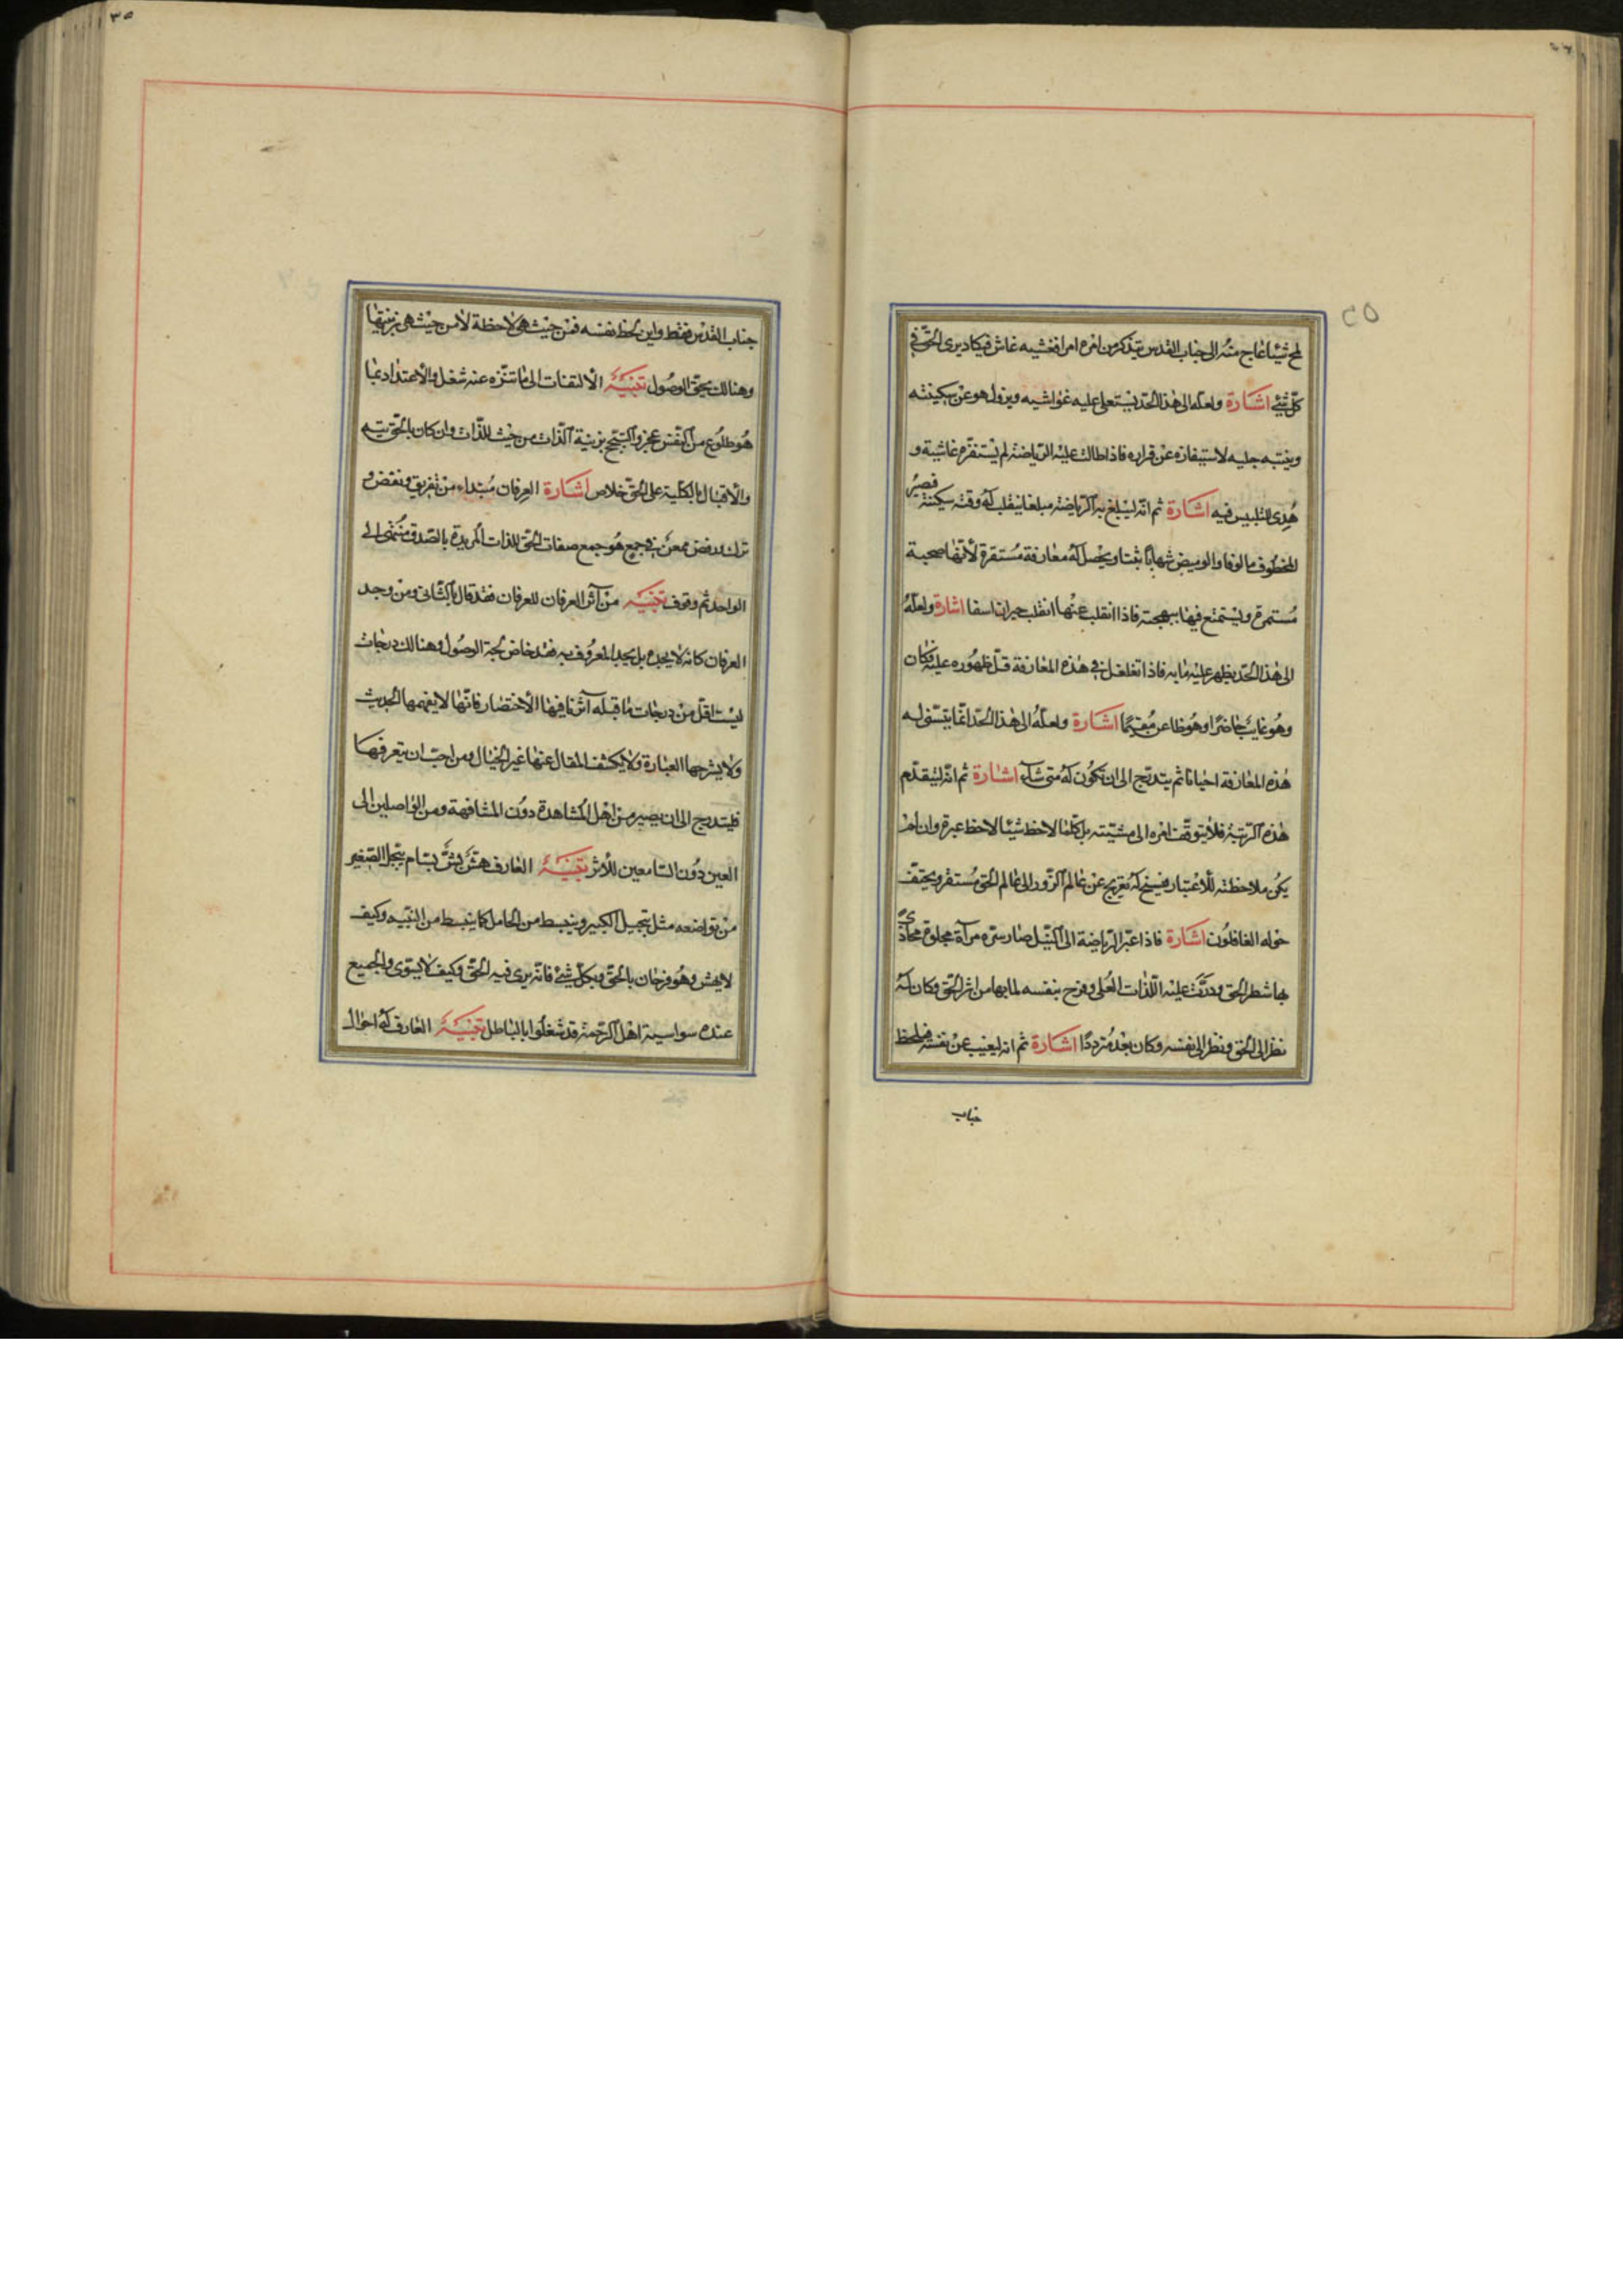 لمح شيئا عاج منه الى جناب القدس يتذكر من امره امرا فغشيه غاش فيكاد يرى الحق في
كل شئ اشارة ولعله الى هذا الحد يستعلى عليه غواشيه ويزول هو عن سكينته
ويتنبه جليسه لاستيفازه عن قراره فاذا طالت عليه الرياضة لم يستفزه غاشية و
هدى للتلبيس فيه اشارة ثم انه ليبلغ به الرياضة مبلغا ينقلب له وقته سكينة فصير
المخطوف مالوفا والوميض شهابا بينا ويحصل له معارفة مستقرة كأنها صحبة
مستمرة ويستمتع فيها ببهجته فاذا انقلب عنها انقلب حيران اسفا اشارة ولعله
الى هذا الحد يظهر عليه ما به فاذا تغلغل في هذه المعارفة قل ظهوره عليه فكان
وهو غايب حاضرا وهو ظاعن مقيما اشارة ولعله الى هذا الحد انما يتسنى له
هذه المعارفة احيانا ثم يتدرج الى ان تكون له متى شاء اشارة ثم انه ليتقدم
هذه الرتبة فلا يتوقف امره الى مشيته بل كلما لاحظ شيئا لاحظ عبرة وان لم
يكن ملاحظته للاعتبار فيسنح له تعريج عن عالم الزور الى عالم الحق مستقر ويحتف
حوله الغافلون اشارة فاذا عبر الرياضة الى النيل صار سره مرآة مجلوة محاذى
بها شطر الحق ودرت عليه اللذات العلى وفرح بنفسه لما بها من اثر الحق وكان له
نظر الى الحق ونظر الى نفسه وكان بعد مترددا اشارة ثم انه ليغيب عن نفسه فيلحظ
جناب
جناب القدس فقط وان لحظ نفسه فمن حيث هى لاحظة لا من حيث هى بزينتها
وهنالك يحق الوصول تنبيه الالتفات الى ما تنزه عنه شغل والاعتداد بما
هو طلوع من النفس عجز والتبجح بزينة الذات من حيث للذات وان كان بالحق تيه
والاقبال بالكلية على الحق خلاص اشارة العرفان مبتداء من تفريق ونفض و
ترك ورفض ممعن في جمع هو جمع صفات الحق للذات المريدة بالصدق منتهى الى
الواحد ثم وقوف تنبيه من آثر العرفان للعرفان فقد قال بالثانى ومن وجد
العرفان كانه لا يجده بل يجد المعروف به فقد خاض لجة الوصول وهنالك درجات
ليست اقل من درجات ما قبله آثرنا فيها الاختصار فانها لا يفهمها الحديث
ولا يشرحها العبارة ولا يكشف المقال عنها غير الخيال ومن احب ان يتعرفها
فليتدرج الى ان يصير من اهل المشاهدة دون المشافهة ومن الواصلين الى
العين دون السامعين للاثر تنبيه العارف هش بش بسام يبجل الصغير
من تواضعه مثل يبجل الكبير وينبسط من الخامل كما ينبسط من النبيه وكيف
لا يهش وهو فرحان بالحق وبكل شئ فانه يرى فيه الحق وكيف لا يستوى والجميع
عنده سواسية اهل الرحمة قد شغلوا بالباطل تنبيه العارف له احوال